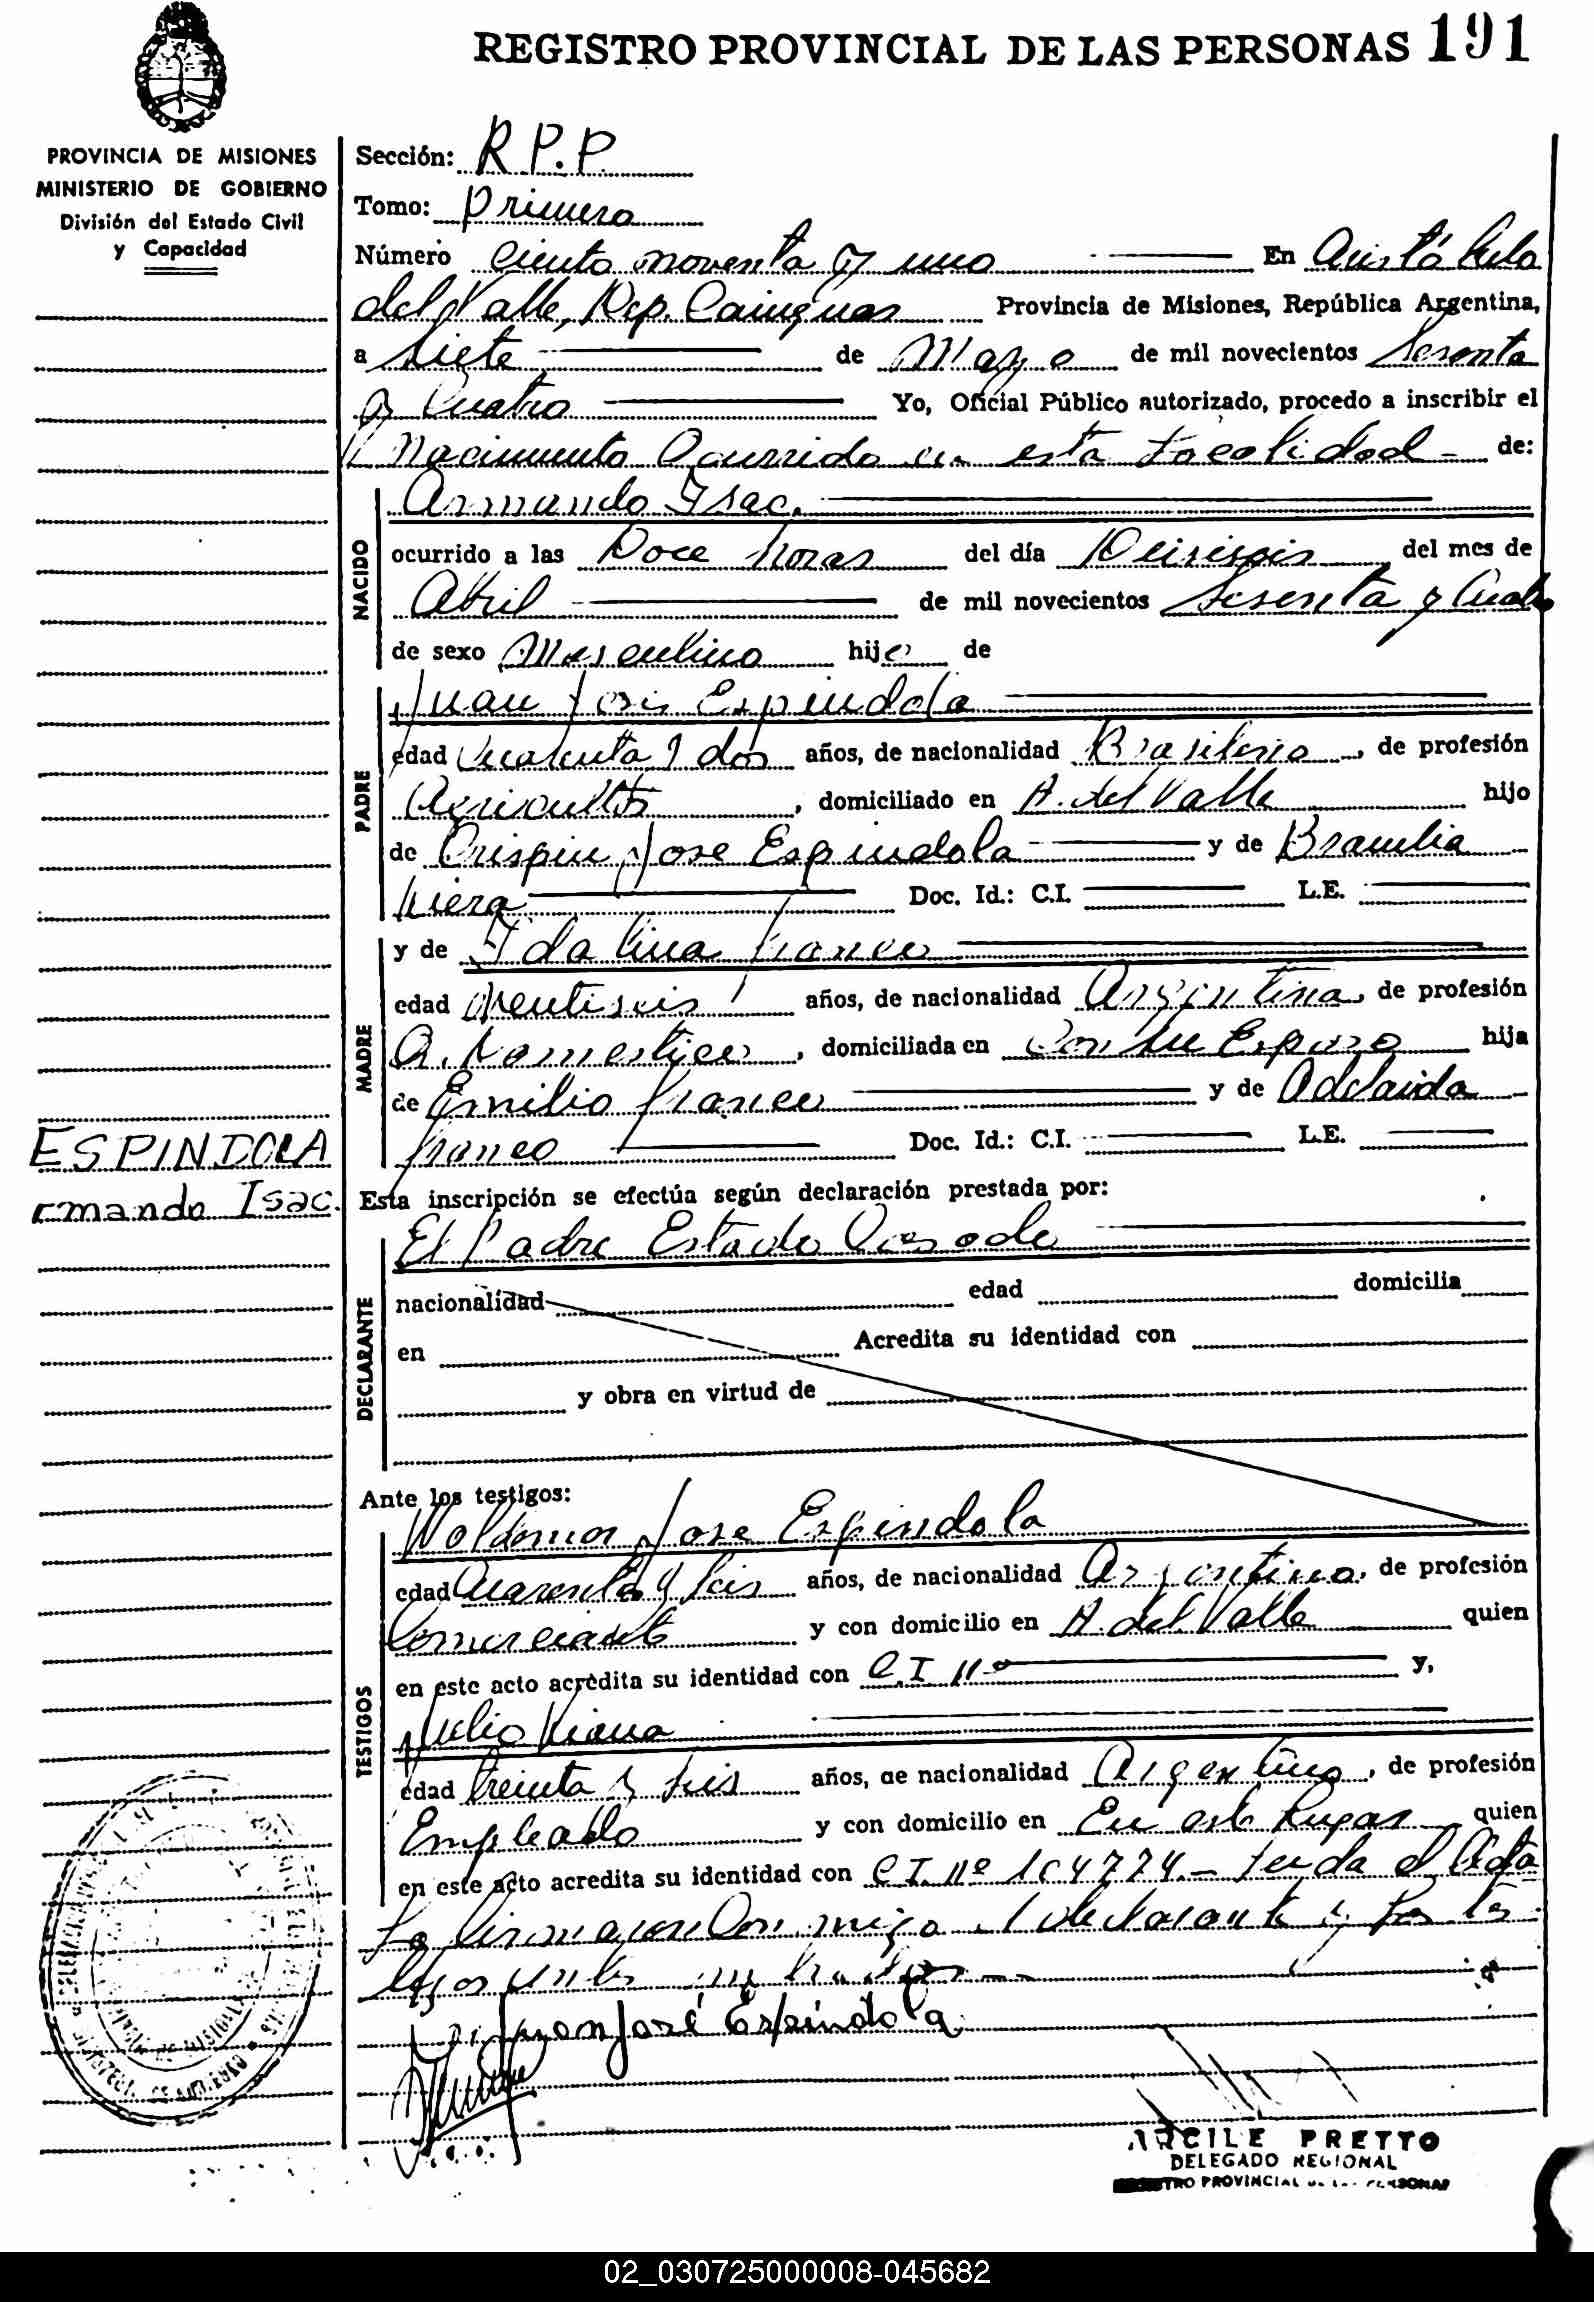 REGISTRO PROVINCIAL DE LAS PERSONAS 191
PROVINCIA DE MISIONES
MINISTERIO DE GOBIERNO
División del Estado Civil
y Capacidad
Sección: R.P.P
Tomo: primero
Número ciento noventa y uno En Aristóbulo
del Valle, Dep. Cainguas Provincia de Misiones, República Argentina,
a siete de Mayo de mil novecientos Sesenta
y Cuatro Yo, Oficial Público autorizado, procedo a inscribir el
Nacimiento Ocurrido en esta Localidad de:
NACIDO
Armando Isac.
ocurrido a las Doce horas del día Dieciseis del mes de
Abril de mil novecientos Sesenta y Cuatro
de sexo Masculino hijo de
PADRE
Juan José Espindola
edad Cuarenta y dos años, de nacionalidad Brasilero, de profesión
Agricultor, domiciliado en A. del Valle hijo
de Crispin Jose Espindola y de Braulia
Viera Doc. Id.: C.I. L.E.
MADRE
y de Idalina Franco
edad años, de nacionalidad Argentina, de profesión
Q. Domesticos, domiciliada en Con su Esposo hija
de Emilio Franco y de Adelaida
Franco Doc. Id.: C.I. L.E.
ESPINDOLA
rmando Isac.
Esta inscripción se efectúa según declaración prestada por:
DECLARANTE
El Padre Estado Casado
nacionalidad edad domicilia
en Acredita su identidad con
y obra en virtud de
Ante los testigos:
TESTIGOS
Waldemar Jose Espindola
edad Cuarenta y Seis años, de nacionalidad Argentino, de profesión
Comerciante y con domicilio en A. del Valle quien
en este acto acredita su identidad con C.I nº y,
Julio Viana
edad Treinta y Seis años, de nacionalidad Argentino, de profesión
Empleado y con domicilio en En este Lugar quien
en este acto acredita su identidad con C.I. nº 104774.- Leida el Acta
La firmaron Conmigo el declarante y los tes
tigos
Juan José Espíndola
ARCILE PRETTO
DELEGADO REGIONAL
REGISTRO PROVINCIAL DE LAS PERSONAS
02_030725000008-045682